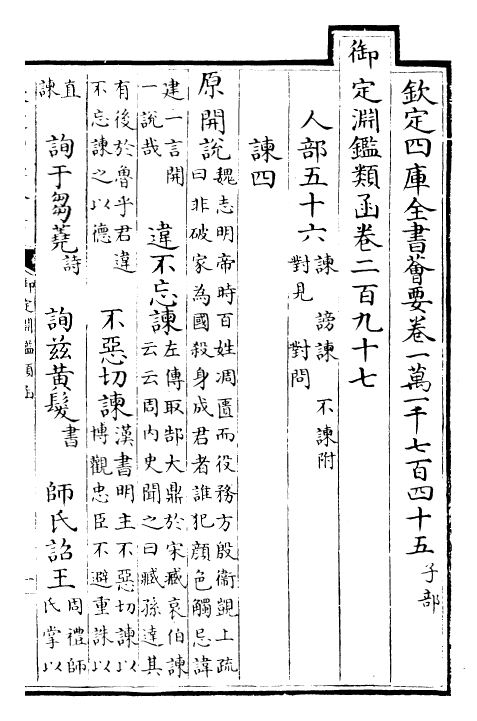 欽定四庫全書薈要卷一萬一千七百四十五 子部
御定淵鑑類函卷二百九十七
人部五十六 諫 謗諫 不諫附
對見 對問
諫四
原開說 魏志明帝時百姓凋匱而役務方殷衛覬上疏
曰非破家為國殺身成君者誰犯顏色觸忌諱
建一言開
一說哉 違不忘諫 左傳取郜大鼎於宋臧哀伯諫
云云周内史聞之曰臧孫達其
有後於魯乎君違
不忘諫之以德 不惡切諫 漢書明主不惡切諫以
博觀忠臣不避重誅以
直
諫 詢于芻蕘 詩 詢兹黃髮 書 師氏詔王 周禮師
氏掌以